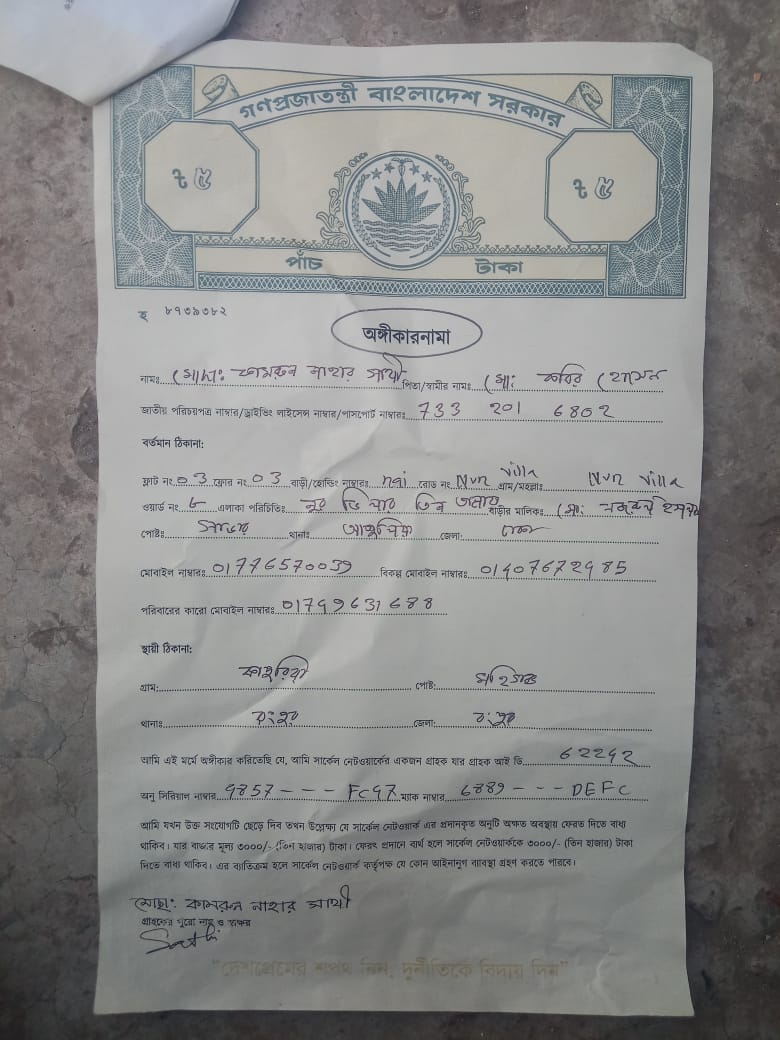 গণপ্রজাতন্ত্রী বাংলাদেশ সরকার
৳ ৫ ৳ ৫
পাঁচ টাকা
হ ৮৭৩৯৩৮২
অঙ্গীকারনামা
নামঃ মোছা: কামরুন নাহার সাথী পিতা/স্বামীর নামঃ মো: কবির হোসেন
জাতীয় পরিচয়পত্র নাম্বার/ড্রাইভিং লাইসেন্স নাম্বার/পাসপোর্ট নাম্বারঃ 733 201 6802
বর্তমান ঠিকানা:
ফ্লাট নং 03 ফ্লোর নং 03 বাড়ী/হোল্ডিং নাম্বারঃ nai রোড নং Nur villa গ্রাম/মহল্লাঃ Nur villa
ওয়ার্ড নং ৮ এলাকা পরিচিতিঃ নুর ভিলার তিন তলায় বাড়ীর মালিকঃ মো:
পোষ্টঃ সাভার থানাঃ আশুলিয়া জেলা: ঢাকা
মোবাইল নাম্বারঃ 01776570039 বিকল্প মোবাইল নাম্বারঃ 01407672985
পরিবারের কারো মোবাইল নাম্বারঃ 01749631688
স্থায়ী ঠিকানা:
গ্রাম: পোষ্ট:
থানাঃ রংপুর জেলা: রংপুর
আমি এই মর্মে অঙ্গীকার করিতেছি যে, আমি সার্কেল নেটওয়ার্কের একজন গ্রাহক যার গ্রাহক আই ডি 62242
অনু সিরিয়াল নাম্বার 4857 - - - FC47 ম্যাক নাম্বার 6889 - - - DEFC
আমি যখন উক্ত সংযোগটি ছেড়ে দিব তখন উল্লেক্ষ্য যে সার্কেল নেটওয়ার্ক এর প্রদানকৃত অনুটি অক্ষত অবস্থায় ফেরত দিতে বাধ্য
থাকিব। যার বাজার মূল্য ৩০০০/- (তিন হাজার) টাকা। ফেরৎ প্রদানে ব্যর্থ হলে সার্কেল নেটওয়ার্ককে ৩০০০/- (তিন হাজার) টাকা
দিতে বাধ্য থাকিব। এর ব্যতিক্রম হলে সার্কেল নেটওয়ার্ক কর্তৃপক্ষ যে কোন আইনানুগ ব্যাবস্থা গ্রহণ করতে পারবে।
মোছা: কামরুন নাহার সাথী
গ্রাহকের পুরো নাম ও স্বাক্ষর
Sathi
"দেশপ্রেমের শপথ নিন, দুর্নীতিকে বিদায় দিন"